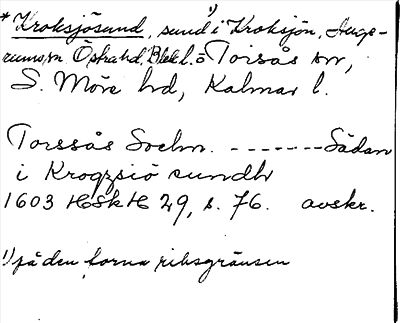 * Kroksjösund, sund ¹⁾ i Kroksjön,
rums sn Östra hd, Blek. l. o Torsås sn,
S. Möre hd, Kalmar l.
Torssås Sochn. ------- Sådan
i Krogzsiö sundh
1603 HöskH 29, s. 76. avskr.
¹⁾ på den forna riksgränsen